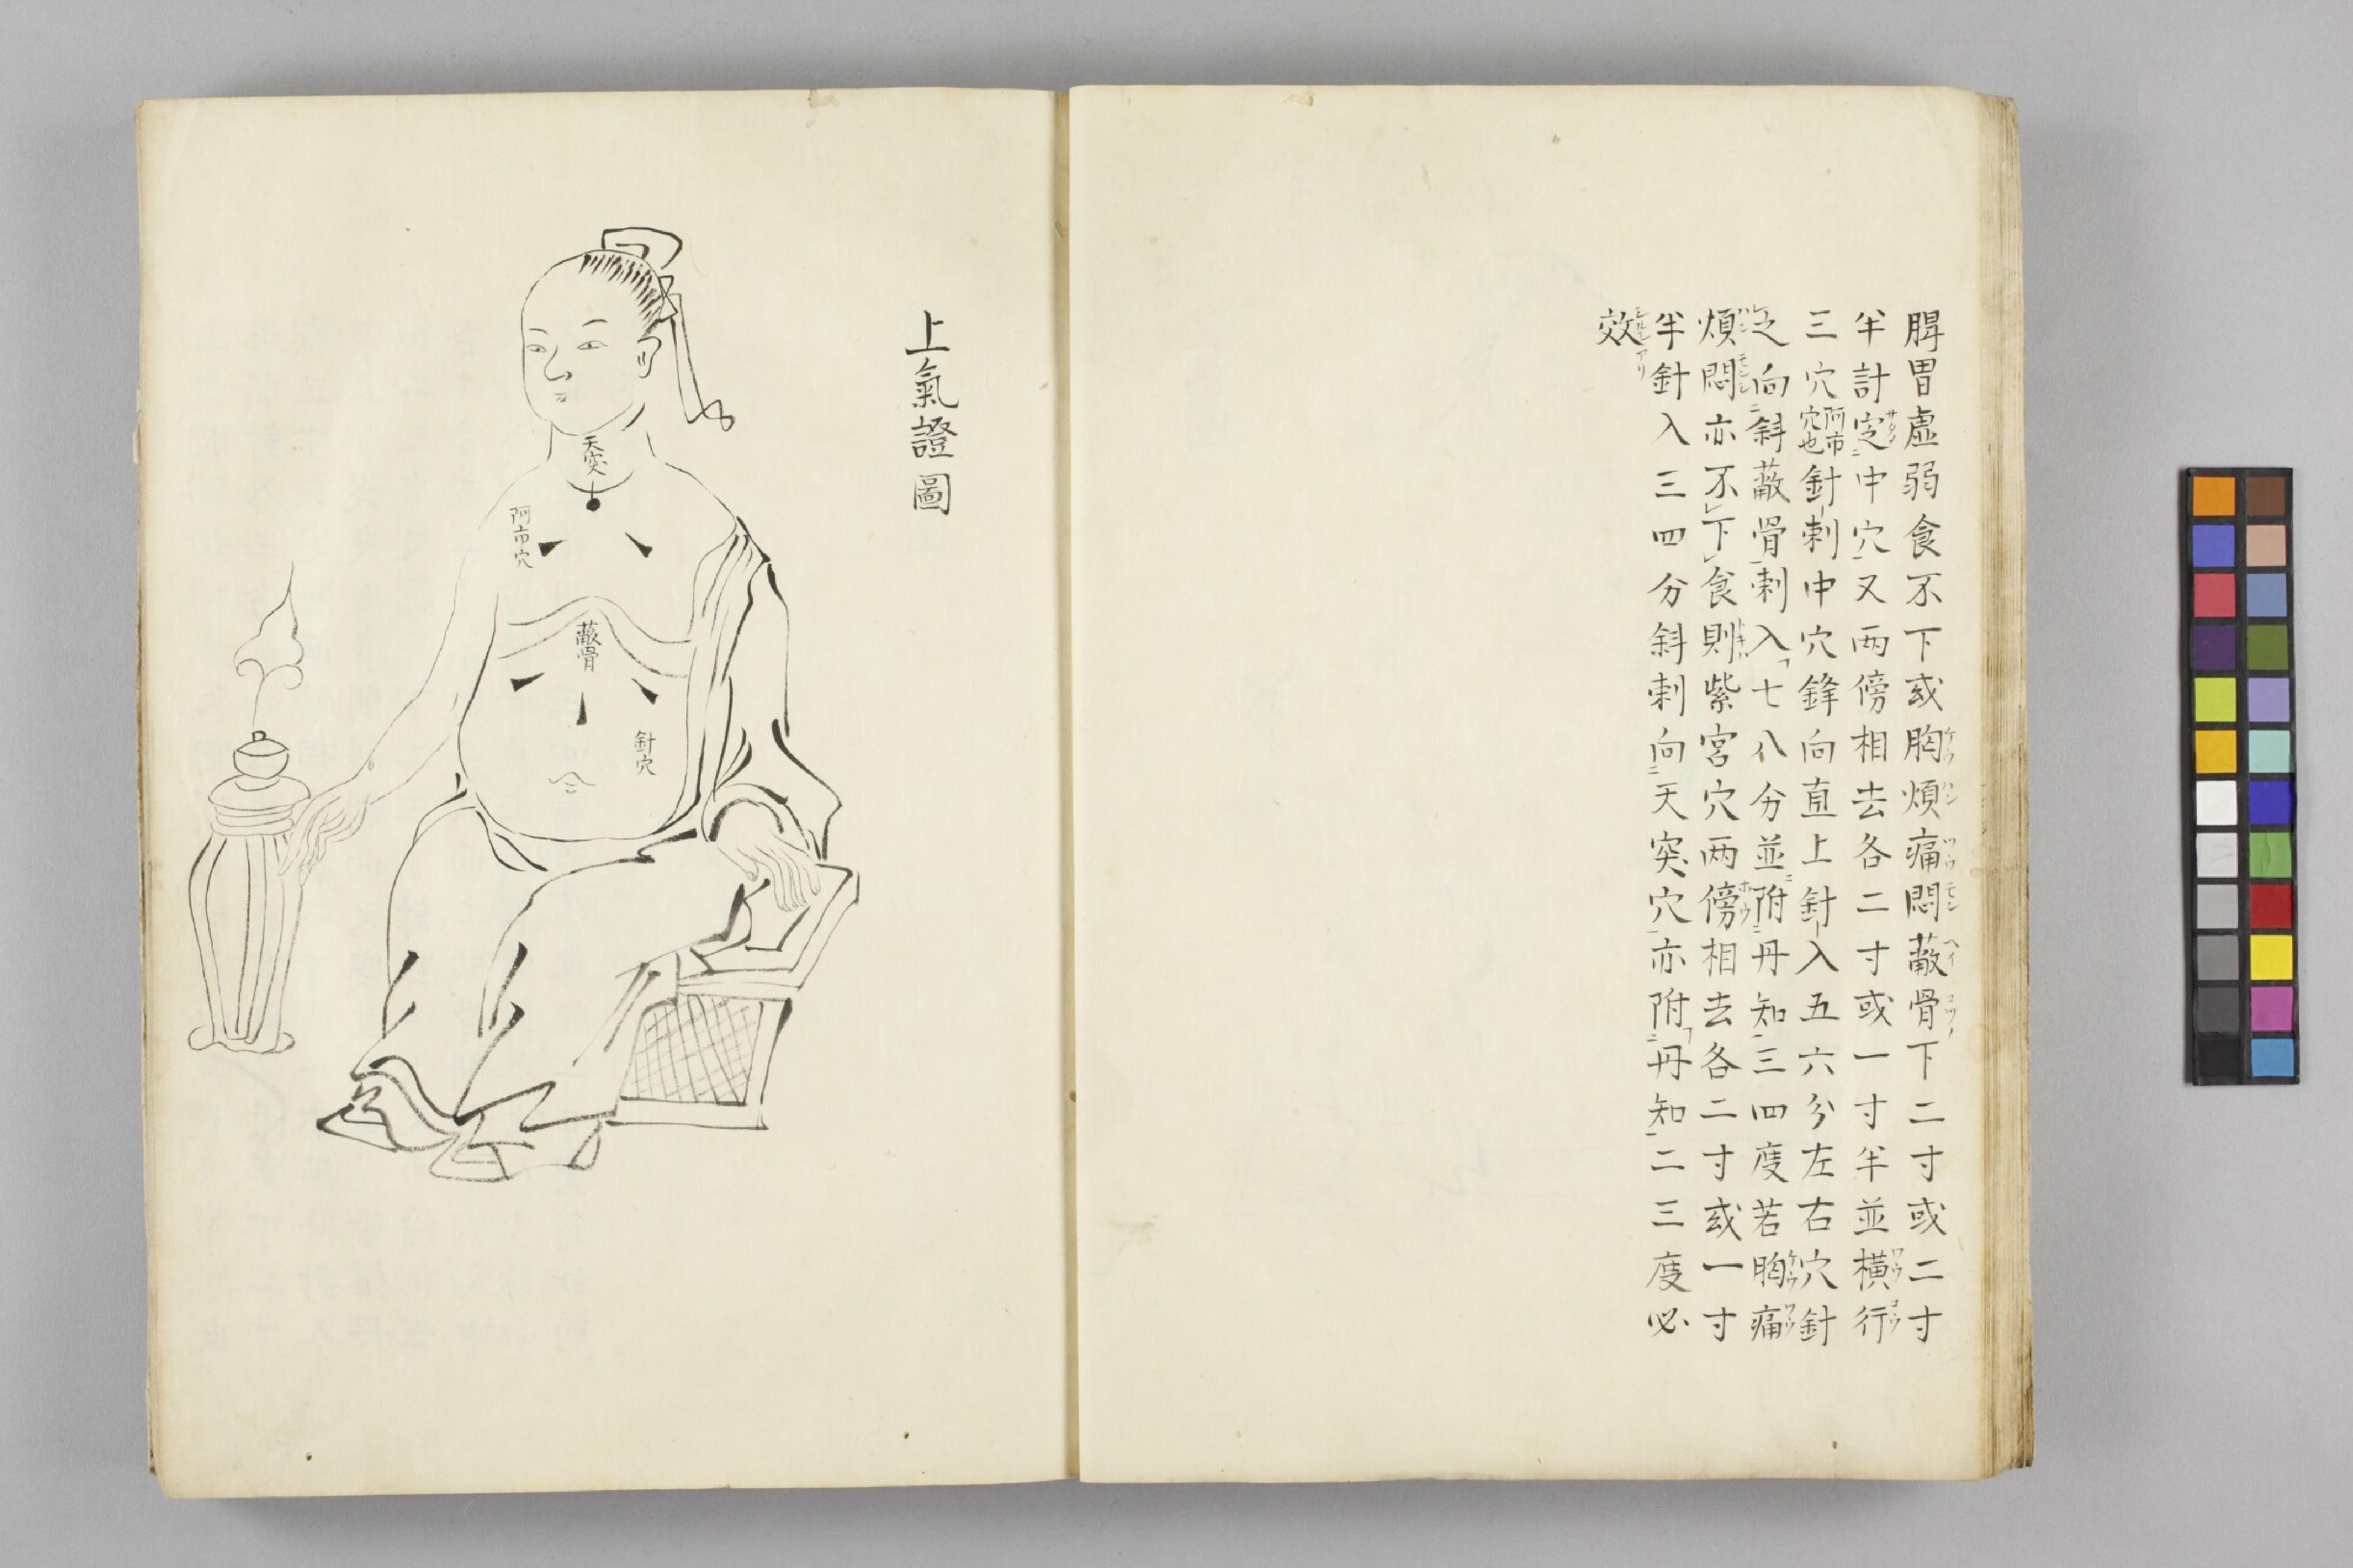 脾胃虛弱食不下或胸煩痛悶蔽骨下二寸或二寸
半計定中穴又两傍相去各二寸或一寸半並橫行
三穴阿市穴也針刺中穴鋒向直上針入五六分左右穴針
之向斜蔽骨刺入七八分並附丹知三四度若胸痛
煩悶亦不下食則紫宮穴两傍相去各二寸或一寸
半針入三四分斜刺向天突穴亦附丹知二三度必
效
上氣證圖
天突
阿市穴
蔽骨
針穴